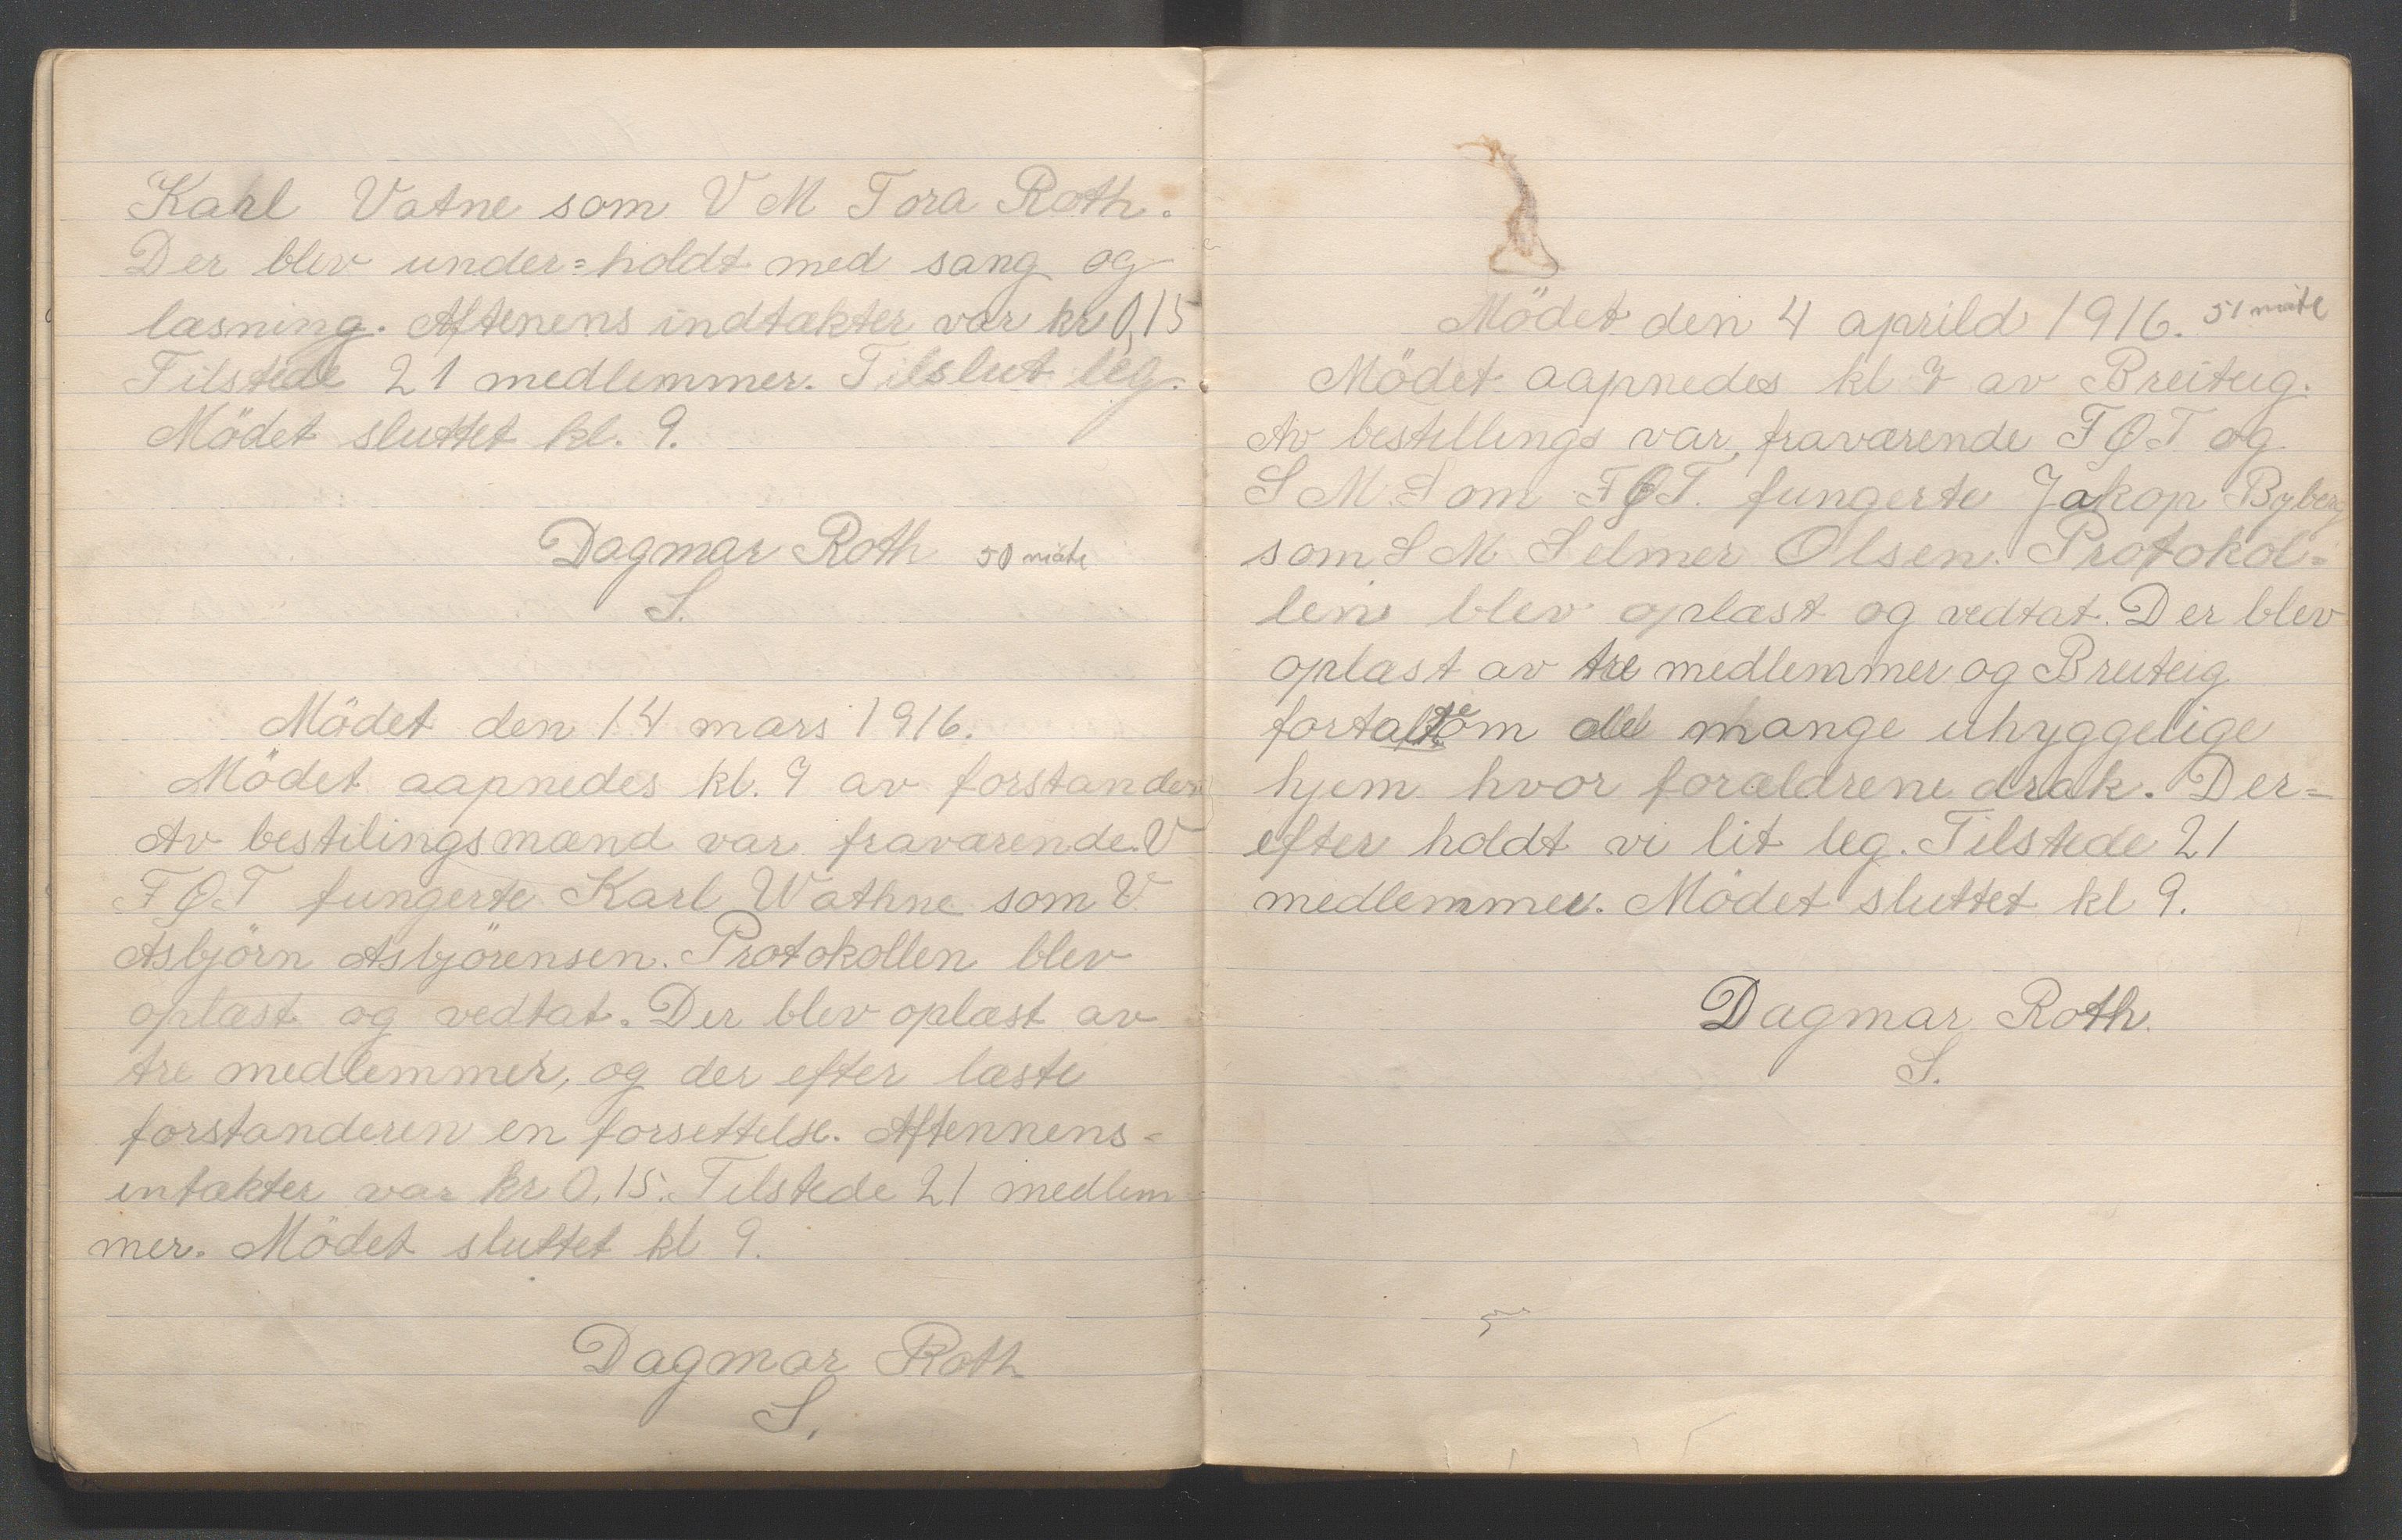 Karl Vatne som V M Tora Roth.
Der blev under=holdt med sang og
læsning. Aftenens indtækter var kr 0,15
Tilstede 21 medlemmer. Tilslut leg.
Mödet sluttet kl. 9.
Dagmar Roth 50 møte
S.
Mödet den 14 mars 1916.
Mödet aapnedes kl. 7 av forstander
Av bestilingsmænd var fraværende. V
F Q T fungerte Karl Wathne som V
Asbjörn Asbjörensen. Protokollen blev
oplæst og vedtat. Der blev oplæst av
tre medlemmer, og der efter læste
forstanderen en forsettelse. Aftennens-
entækter var kr 0,15. Tilstede 21 medlem-
mer. Mödet sluttet kl 9.
Dagmar Roth
S.
Mödet den 4 aprild 1916. 51 møte
Mödet aapnedes kl 7 av Breiteig.
Av bestillings var fraværende F Q T og
S M Som F Q T. fungerte Jakop Byberg
som S M Selmer Olsen. Protokol=
len blev oplæst og vedtat. Der blev
oplæst av tre medlemmer og Breiteig
fortalte om de mange uhyggelige
hjem hvor forældrene drak. Der=
efter holdt vi lit leg. Tilstede 21
medlemmer. Mödet sluttet kl 9.
Dagmar Roth.
S.